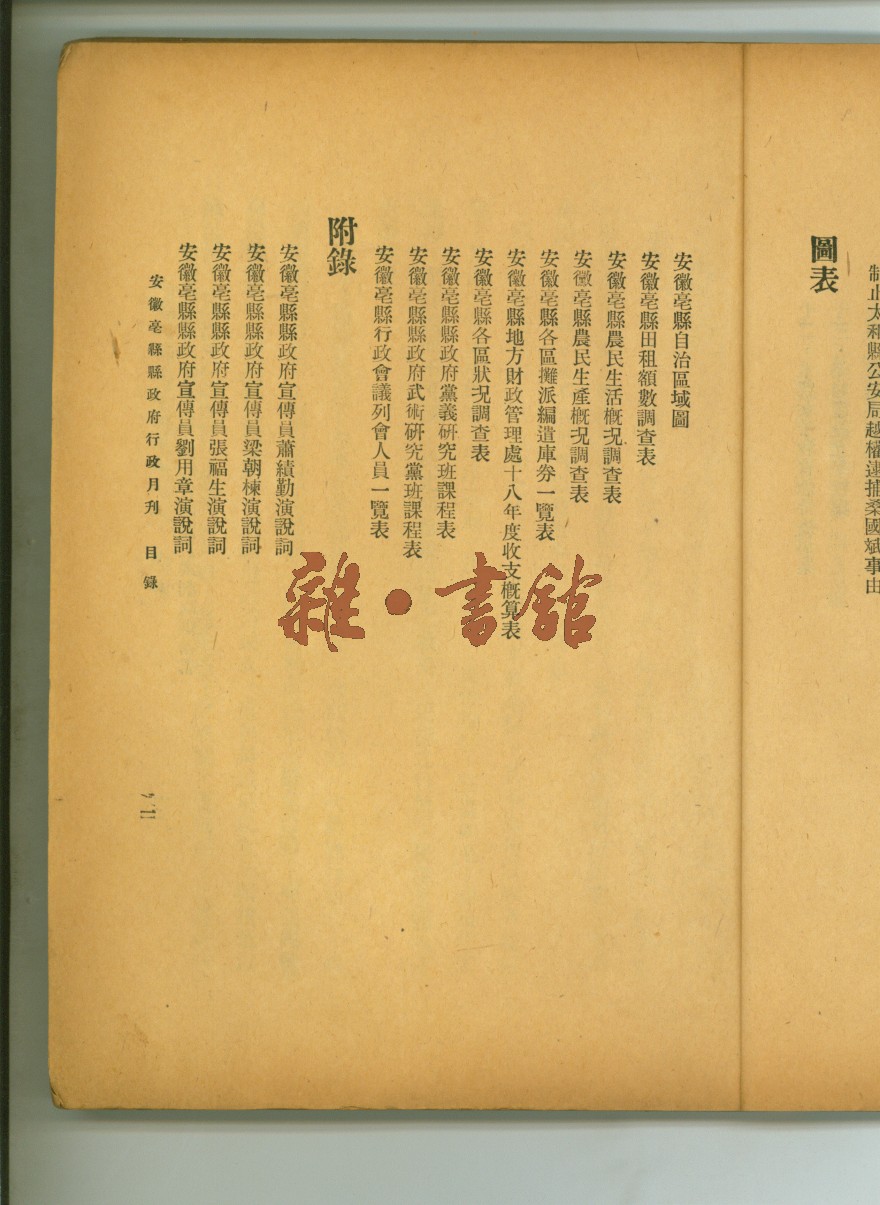 制止太和縣公安局越權逮捕桑國斌事由
圖表
安徽亳縣自治區域圖
安徽亳縣田租額數調查表
安徽亳縣農民生活概况調查表
安徽亳縣農民生產概况調查表
安徽亳縣各區攤派編遣庫券一覽表
安徽亳縣地方財政管理處十八年度收支概算表
安徽亳縣各區狀况調查表
安徽亳縣縣政府黨義研究班課程表
安徽亳縣縣政府武術研究黨班課程表
安徽亳縣行政會議列會人員一覽表
附錄
安徽亳縣縣政府宣傳員蕭績勤演說詞
安徽亳縣縣政府宣傳員梁朝棟演說詞
安徽亳縣縣政府宣傳員張福生演說詞
安徽亳縣縣政府宣傳員劉用章演說詞
安徽亳縣縣政府行政月刊 目錄
雜·書館